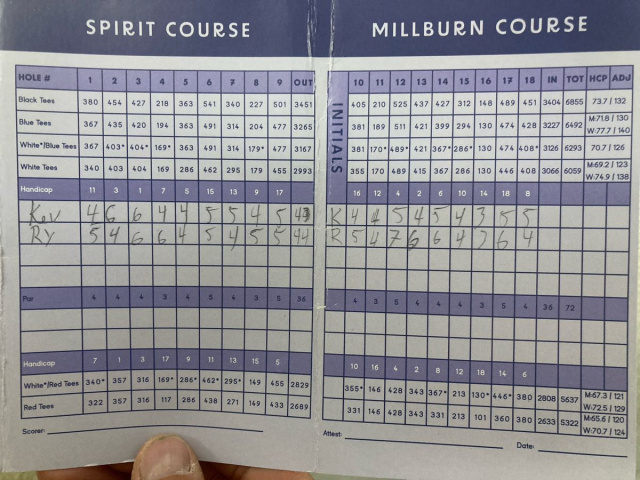 SPIRIT COURSE
HOLE # 1 2 3 4 5 6 7 8 9 OUT
Black Tees 380 454 427 218 363 541 340 227 501 3451
Blue Tees 367 435 420 194 363 491 314 204 477 3265
White*/Blue Tees 367 403* 404* 169* 363 491 314 179* 477 3167
White Tees 340 403 404 169 286 462 295 179 455 2993
Handicap 11 3 1 7 5 15 13 9 17
Kev 4 6 6 4 4 5 5 4 5 43
Ry 5 4 6 6 4 5 4 5 5 44
Par 4 4 4 3 4 5 4 3 5 36
Handicap 7 1 3 17 9 11 13 15 5
White*/Red Tees 340* 357 316 169* 286* 462* 295* 149 455 2829
Red Tees 322 357 316 117 286 438 271 149 433 2689
Scorer:
MILLBURN COURSE
INITIALS
10 11 12 13 14 15 16 17 18 IN TOT HCP ADJ
405 210 525 437 427 312 148 489 451 3404 6855 73.7 / 132
381 189 511 421 399 294 130 474 428 3227 6492 M:71.8 / 130 W:77.7 / 140
381 170* 489* 421 367* 286* 130 474 408* 3126 6293 70.7 / 126
355 170 489 415 367 286 130 446 408 3066 6059 M:69.2 / 123 W:74.9 / 138
16 12 4 2 6 10 14 18 8
K 4 4 5 4 5 4 3 5 5
R 5 4 7 6 6 4 3 6 4
4 3 5 4 4 4 3 5 4 36 72
10 16 4 2 8 12 18 14 6
355* 146 428 343 367* 213 130* 446* 380 2808 5637 M:67.3 / 121 W:72.5 / 129
331 146 428 343 331 213 101 360 380 2633 5322 M:65.6 / 120 W:70.7 / 124
Attest:
Date: